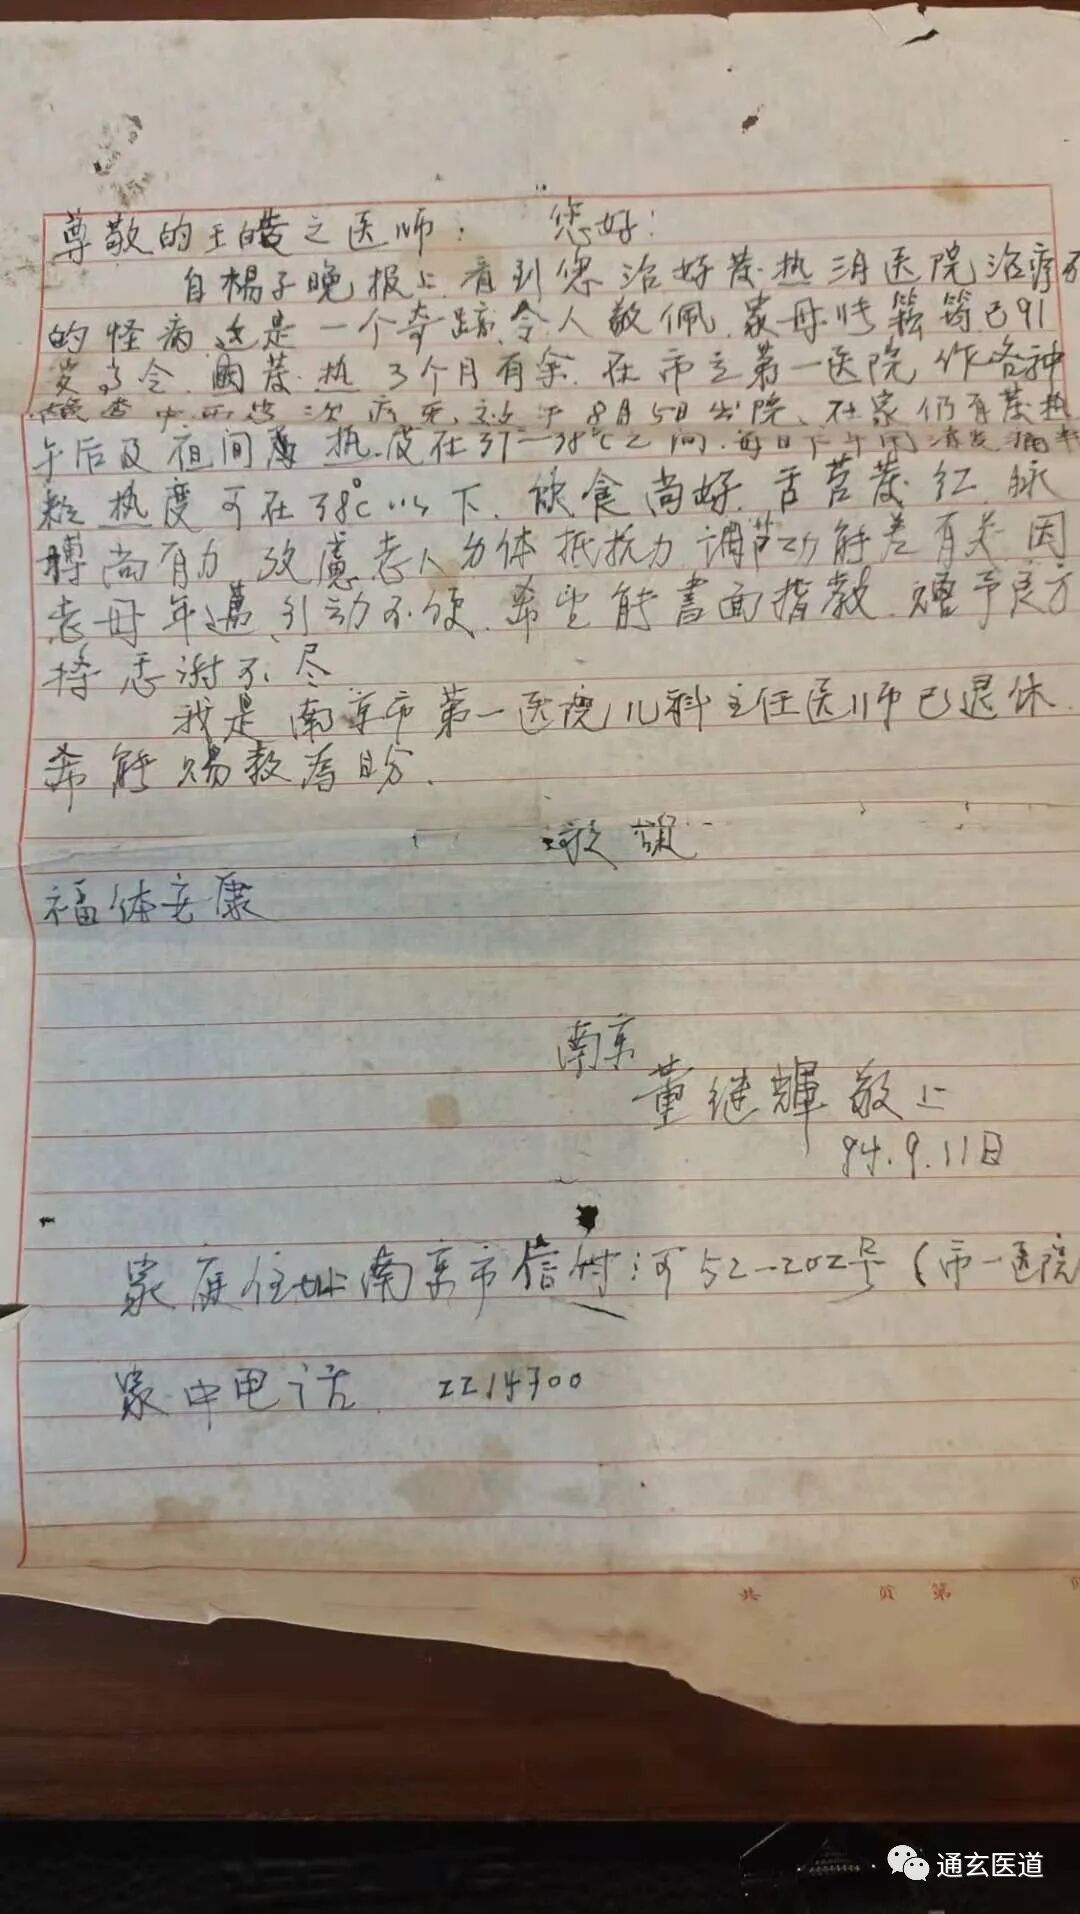 尊敬的王皓之医师：您好！
自扬子晚报上看到您治好发热三月医院治疗不
的怪病这是一个奇迹，令人敬佩，家母 籍筠已91
岁高令，因发热3个月有余，在市立第一医院作各种
 8月5日出院，在家仍有发热
午后及夜间 热度在37—38℃之间，每日下午用消炎痛半
粒热度可在38℃以下，饮食尚好，舌苔发红，脉
搏尚有力 考虑老人身体抵抗力调节功能差有关，因
老母年迈行动不便，希望能书面指教，赠予良方
将感谢不尽
我是南京市第一医院儿科主任医师已退休，
希能赐教为盼。
敬祝
福体安康
南京
董继辉敬上
94.9.11日
家庭住址南京市信府河52—202号（市一医院
家中电话 2214700
共 页 第 页
通玄医道